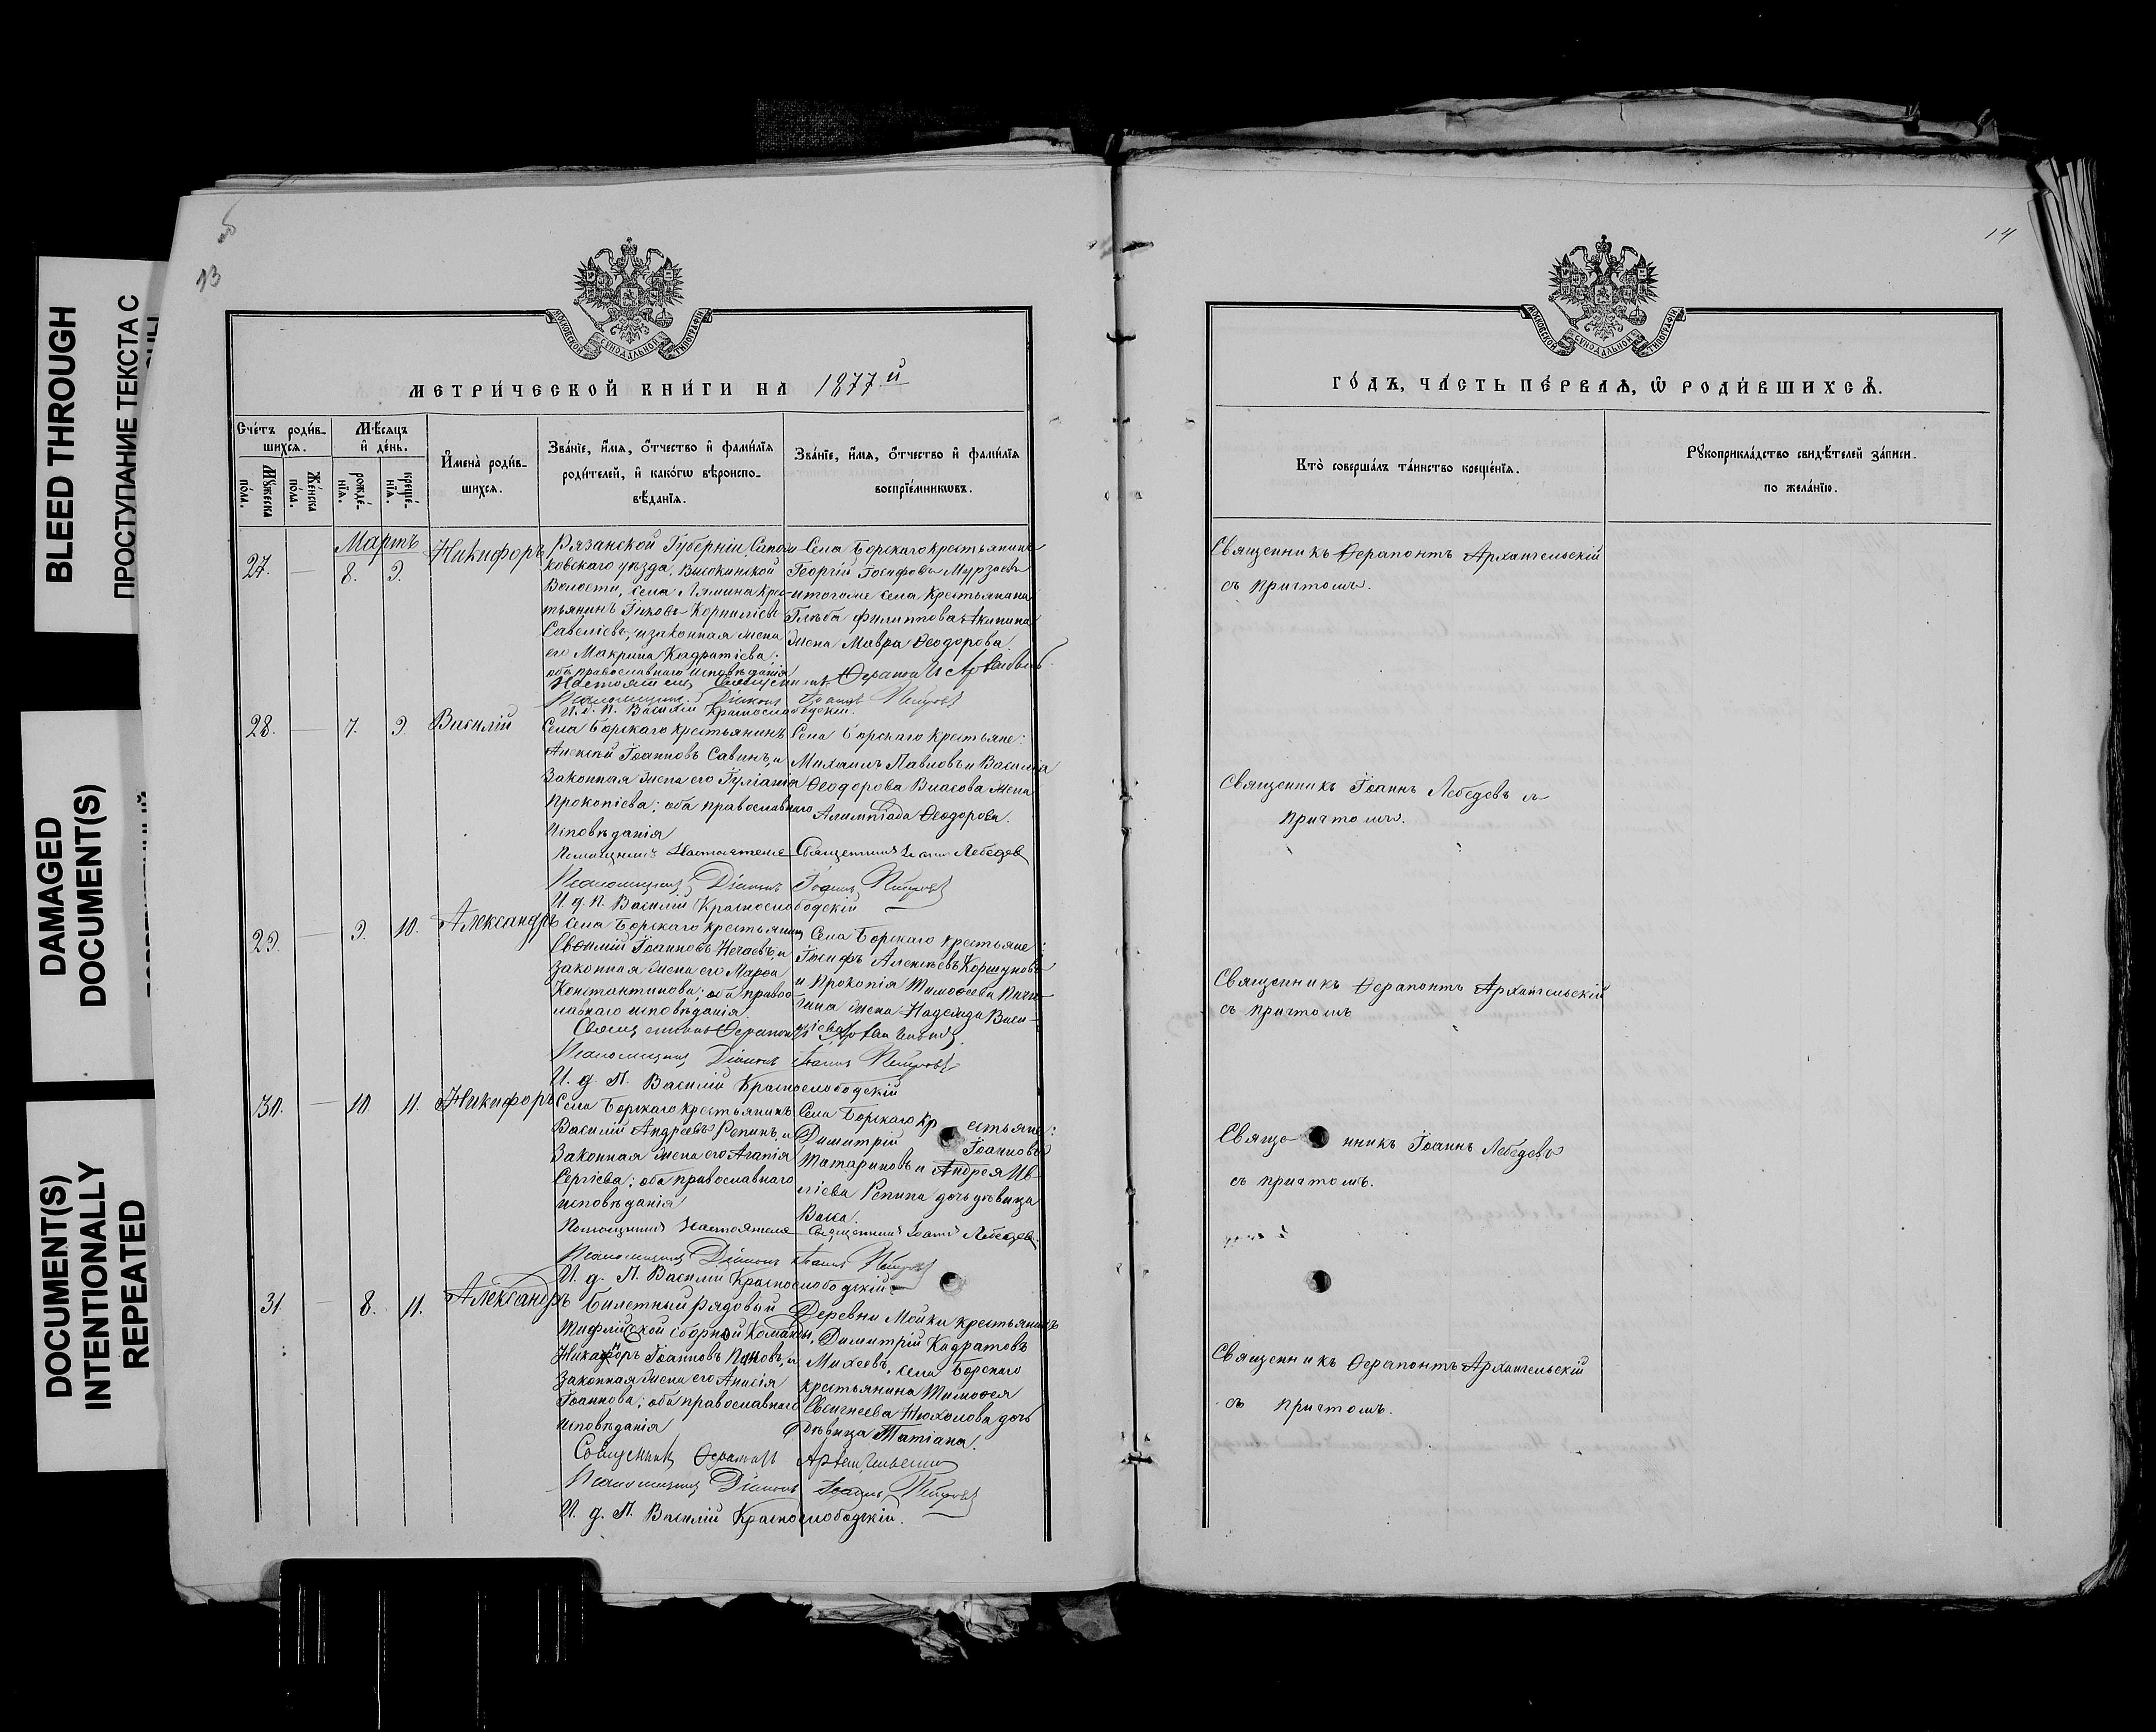 BLEED THROUGH
ПРОСТУПАНИЕ ТЕКСТА С
DAMAGED
DOCUMENT(S)
DOCUMENT(S)
INTENTIONALLY
REPEATED
13
МЕТРИ́ЧЕСКОЙ КНИ́ГИ НА 1877й
Сче́тъ роди́в-
шихсѧ.
Мꙋ́жеска
по́ла.
Же́нска
по́ла.
Мѣ́сѧцъ
и҆ де́нь.
рожде́-
нїѧ.
креще́-
нїѧ.
И҆мена̀ роди́в-
шихсѧ.
Зва́нїе, и҆́мѧ, ѻ҆́тчество и҆ фами́лїѧ
роди́телей, и҆ како́гѡ вѣроиспо-
вѣ́данїѧ.
Зва́нїе, и҆́мѧ, ѻ҆́тчество и҆ фами́лїѧ
воспрїе́мникѡвъ.
Мартъ
27. — 8. 9. Никифоръ
Рязанской Губерніи, Сапож-
ковскаго уѣзда,
Волости, села Лямина крес-
тьянинъ Іаковъ Корниліевъ
Савеліевъ, и законная жена
его Макрина Кадратіева;
оба православнаго исповѣданія
Села Борскаго крестьянинъ
Георгій Іосифовъ Мурзаевъ
и тогоже села крестьянина
Глѣба Филиппова Акинина
жена Мавра Ѳеодорова.
Настоятель, Священникъ Ѳерапонтъ Архангельскій
Псаломщикъ Діаконъ Іоаннъ Петровъ
И. д. П. Василій Краснослободскій.
28. — 7. 9. Василій
Села Борскаго крестьянинъ
Алексій Іоанновъ Савинъ, и
законная жена его Іуліанія
Прокопіева; оба православнаго
исповѣданія
Села Борскаго крестьяне:
Михаилъ Павловъ и Василія
Ѳеодорова Власова жена
Алимпіада Ѳеодорова.
Помощникъ Настоятеля Священникъ Іоаннъ Лебедевъ
Псаломщикъ Діаконъ Іоаннъ Петровъ
И. д. П. Василій Краснослободскій
29. — 9. 10. Александръ
Села Борскаго крестьянинъ
Іоанновъ Нечаевъ, и
законная жена его Марѳа
Константинова; оба правос-
лавнаго исповѣданія.
Села Борскаго крестьяне:
Іосифъ Алексѣевъ Коршуновъ
и Прокопія Тимоѳеева Пичу-
гина жена Надежда Васи-
ліева
Священникъ Ѳерапонтъ Архангельскій
Псаломщикъ Діаконъ Іоаннъ Петровъ
И. д. П. Василій Краснослободскій
30. — 10. 11. Никифоръ
Села Борскаго крестьянинъ
Василій Андреевъ Репинъ, и
законная жена его Агапія
Сергіева; оба православнаго
исповѣданія
Села Борскаго крестьяне:
Димитрій Іоанновъ
Татариновъ и Андрея Ив-
Репина дочь дѣвица
Васса.
Помощникъ Настоятеля Священникъ Іоаннъ Лебедевъ.
Псаломщикъ Діаконъ Іоаннъ Петровъ
И. д. П. Василій Краснослободскій
31. — 8. 11. Александръ
Билетный рядовый
Тифлисской сборной команды,
Никифоръ Іоанновъ Пановъ, и
законная жена его Анисія
Іоаннова; оба православнаго
исповѣданія
Деревни Мойки крестьянинъ
Димитрій Кадратовъ
Михеевъ, села Борскаго
крестьянина Тимоѳея
дочь
дѣвица Татіана.
Священникъ Ѳерапонтъ Архангельскій
Псаломщикъ Діаконъ Іоаннъ Петровъ
И. д. П. Василій Краснослободскій.
14
ГО́ДЪ, ЧА́СТЬ ПЕ́РВАѦ, Ѡ҆ РОДИ́ВШИХСѦ.
Кто̀ соверша́лъ та́инство креще́нїѧ.
Рꙋкоприкла́дство свидѣ́телей за́писи
по жела́нїю.
Священникъ Ѳерапонтъ Архангельскій
съ причтомъ.
Священникъ Іоаннъ Лебедевъ съ
причтомъ.
Священникъ Ѳерапонтъ Архангельскій
съ причтомъ
Священникъ Іоаннъ Лебедевъ
съ причтомъ.
Священникъ Ѳерапонтъ Архангельскій
съ причтомъ.